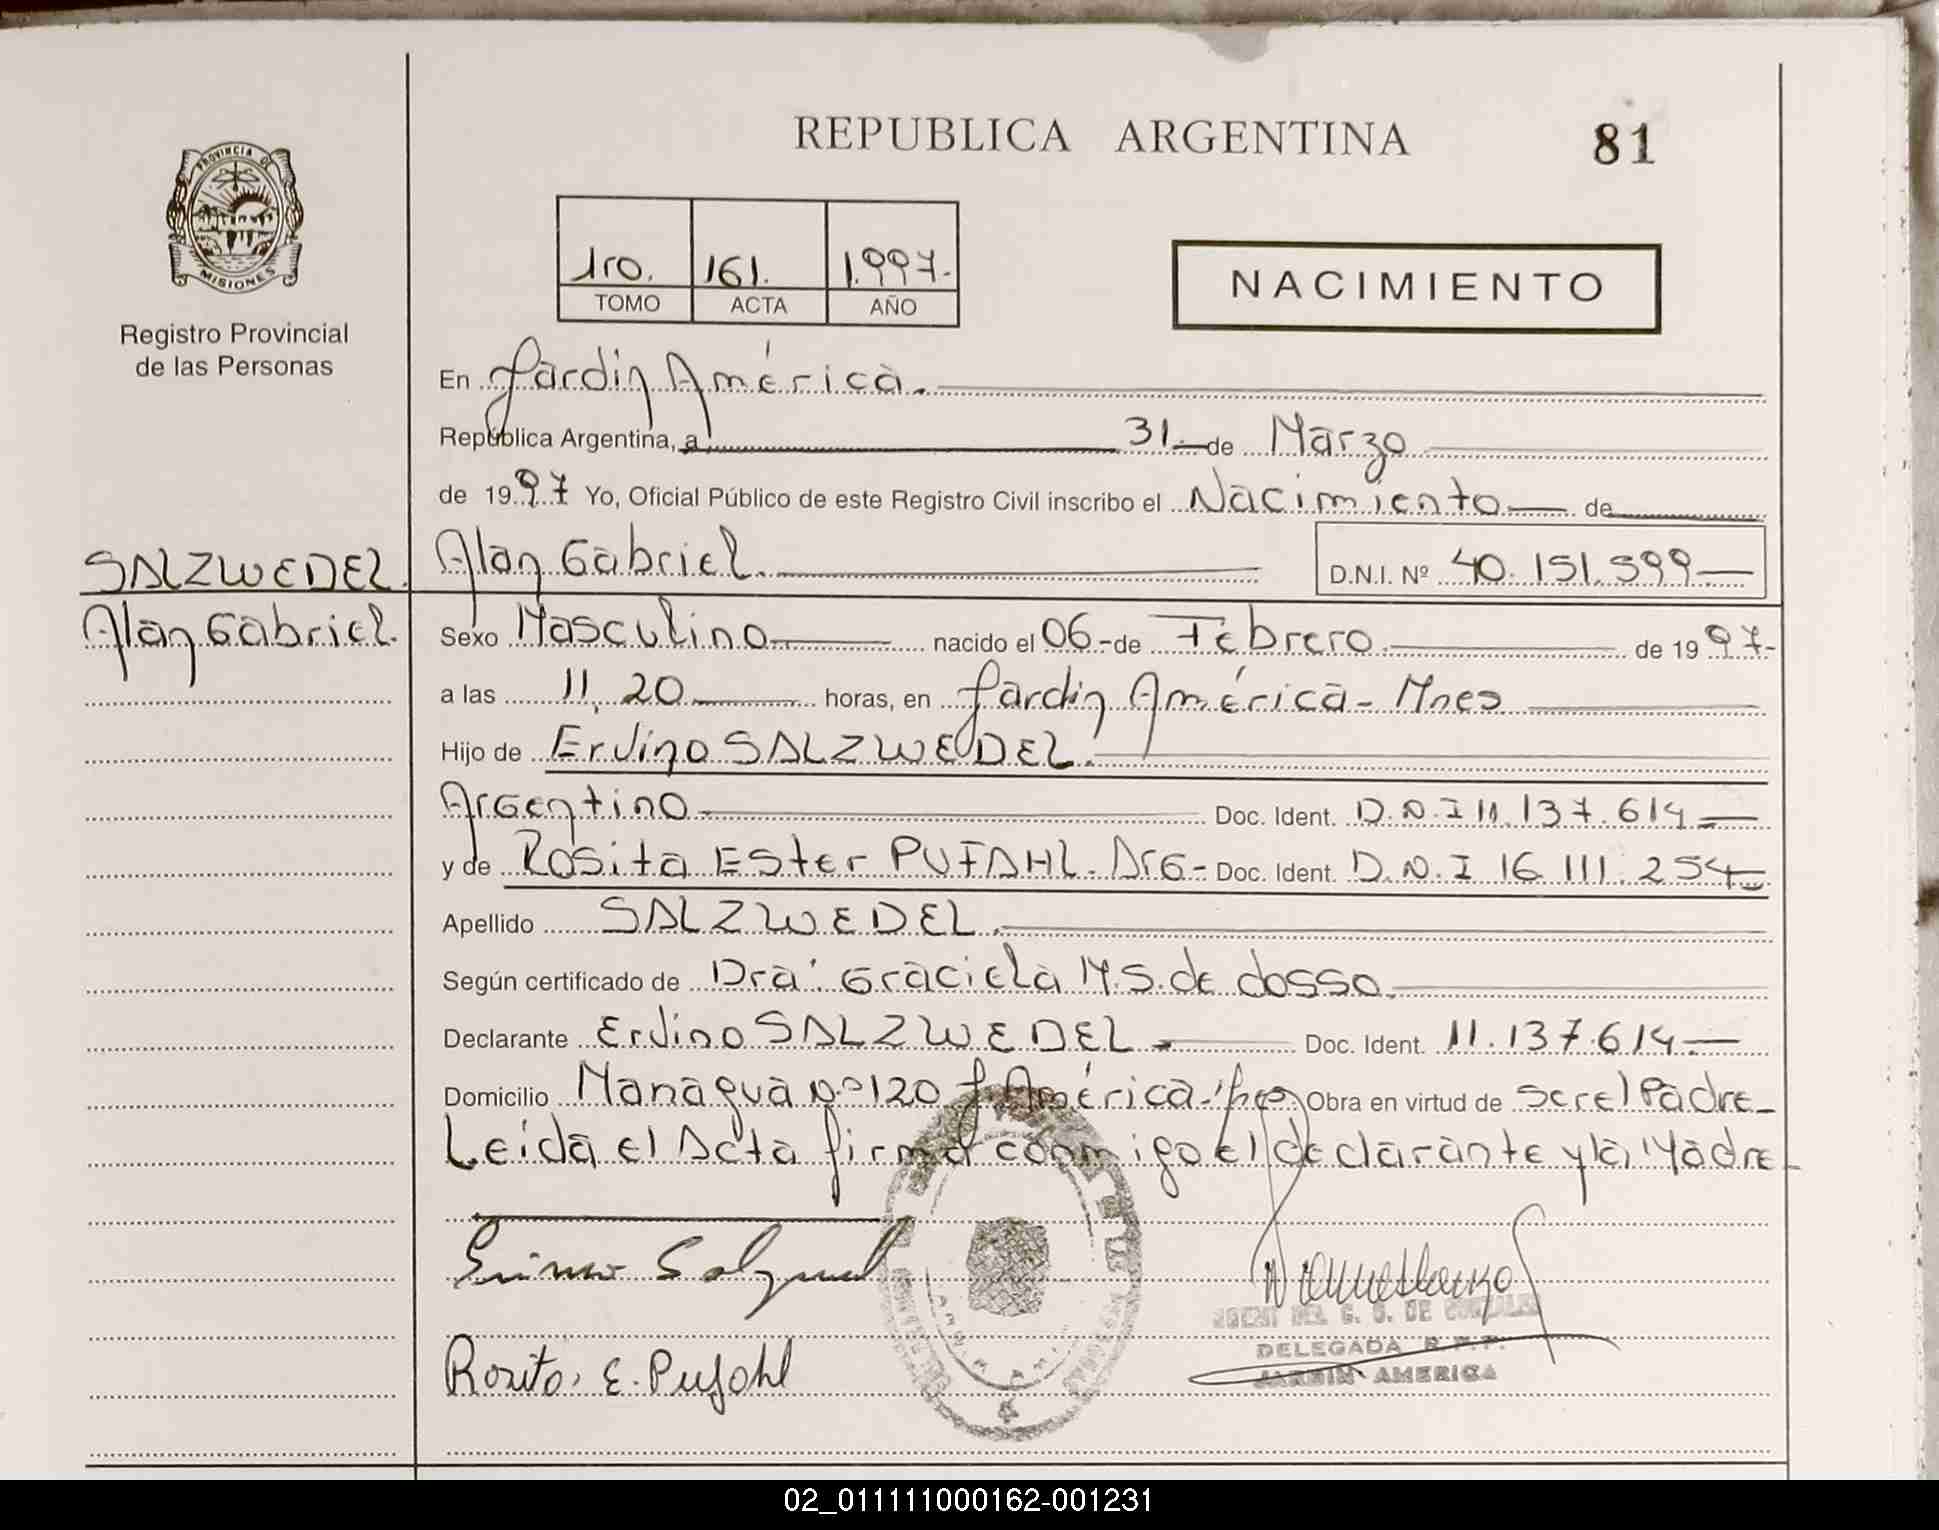 REPUBLICA ARGENTINA
81
PROVINCIA DE
MISIONES
Registro Provincial
de las Personas
1ro. 161. 1.997.-
TOMO ACTA AÑO
NACIMIENTO
En Jardin América.
República Argentina, a 31.- de Marzo
de 1997 Yo, Oficial Público de este Registro Civil inscribo el Nacimiento de
SALZWEDEL.
Alan Gabriel.
Alan Gabriel.
D.N.I. Nº 40.151.599
Sexo Masculino nacido el 06-de Febrero. de 1997-
a las 11,20 horas, en Jardin América - Mnes
Hijo de Ervino SALZWEDEL.
Argentino Doc. Ident. D.N.I 11.137.614
y de Rosita Ester PUFAHL. Arg- Doc. Ident. D.N.I 16.111.254
Apellido SALZWEDEL.
Según certificado de Dra. Graciela M.S. de dosso.
Declarante Ervino SALZWEDEL Doc. Ident. 11.137.614.
Domicilio Managua Nº 120 J. América Obra en virtud de ser el Padre_
Leida el Acta firma conmigo el declarante y la Madre_
Rosita, E. Pufahl
DE GONZALEZ
DELEGADA R.P.P.
JARDIN AMERICA
02_011111000162-001231